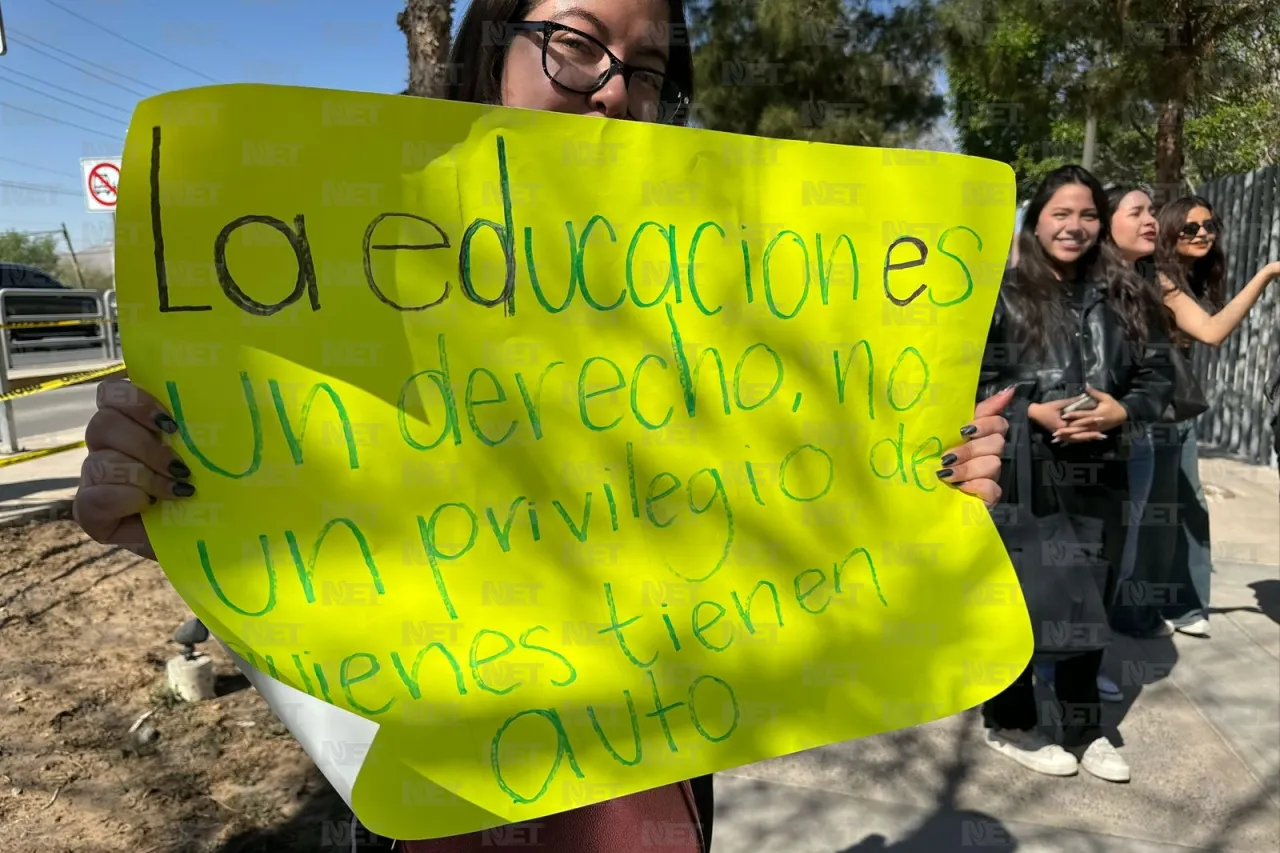 La educacion es
un derecho, no
un privilegio de
quienes tienen
auto
NET